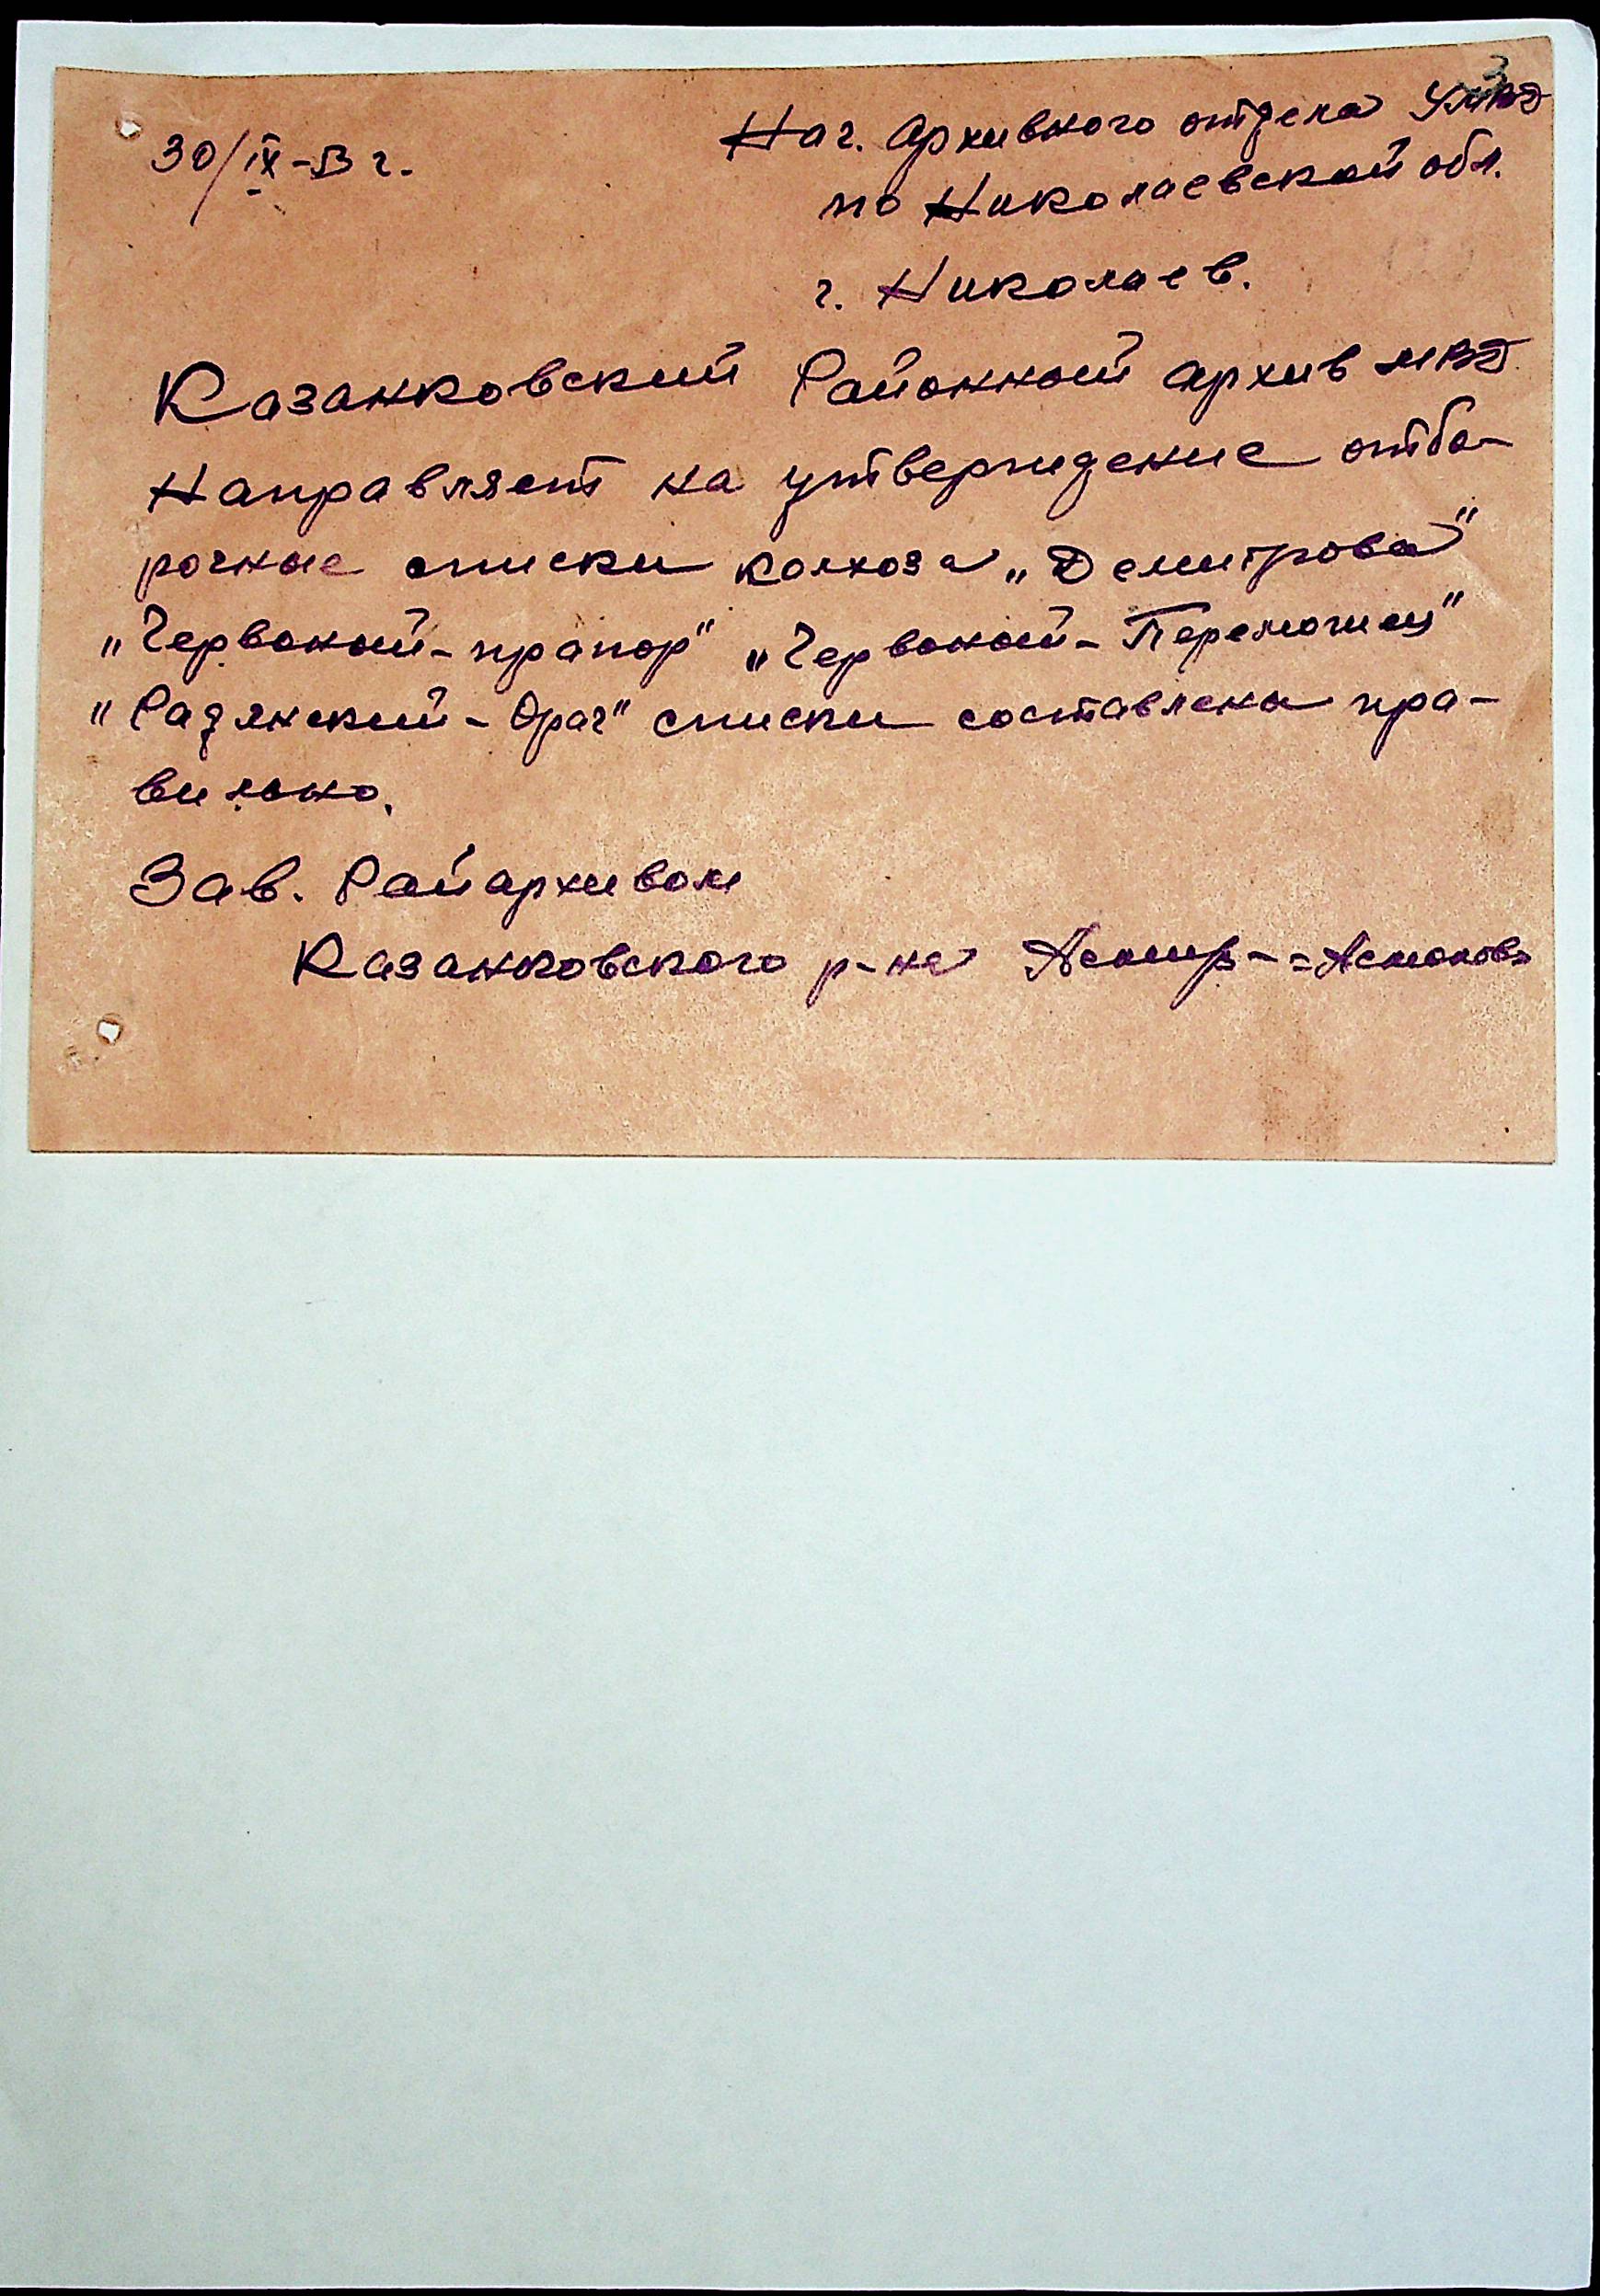 3
30/IX-53 г.
Нач. Архивного отдела УМВД
по Николаевской обл.
г. Николаев.
Казанковский Районный архив МВД
Направляет на утверждение отбо-
рочные списки колхоза „Демитрова"
„Червоный-прапор" „Червоный-Переможец"
„Радянский-Орач" списки составлены пра-
вильно.
Зав. Райархивом
Казанковского р-на